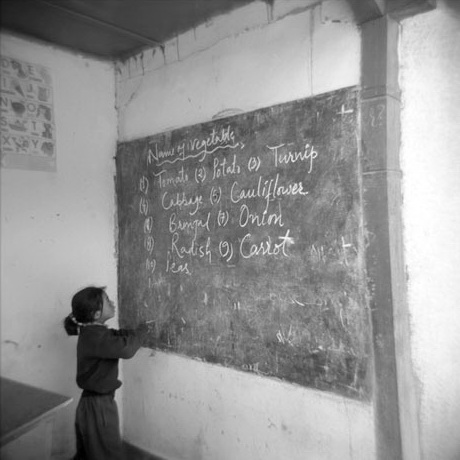 Name of vegetable
(1) Tomato (2) Potato (3) Turnip
(4) Cabbage (5) Cauliflower
(6) Brinjal (7) Onion
(8) Radish (9) Carrot
(10) Peas